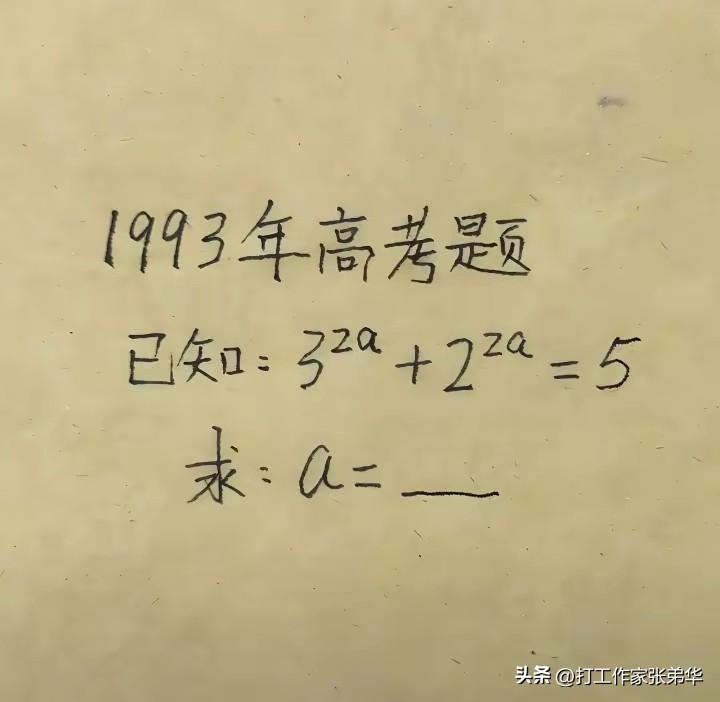 1993年高考题
已知：3^{2a} + 2^{2a} = 5
求：a = ___
头条 @打工作家张弟华